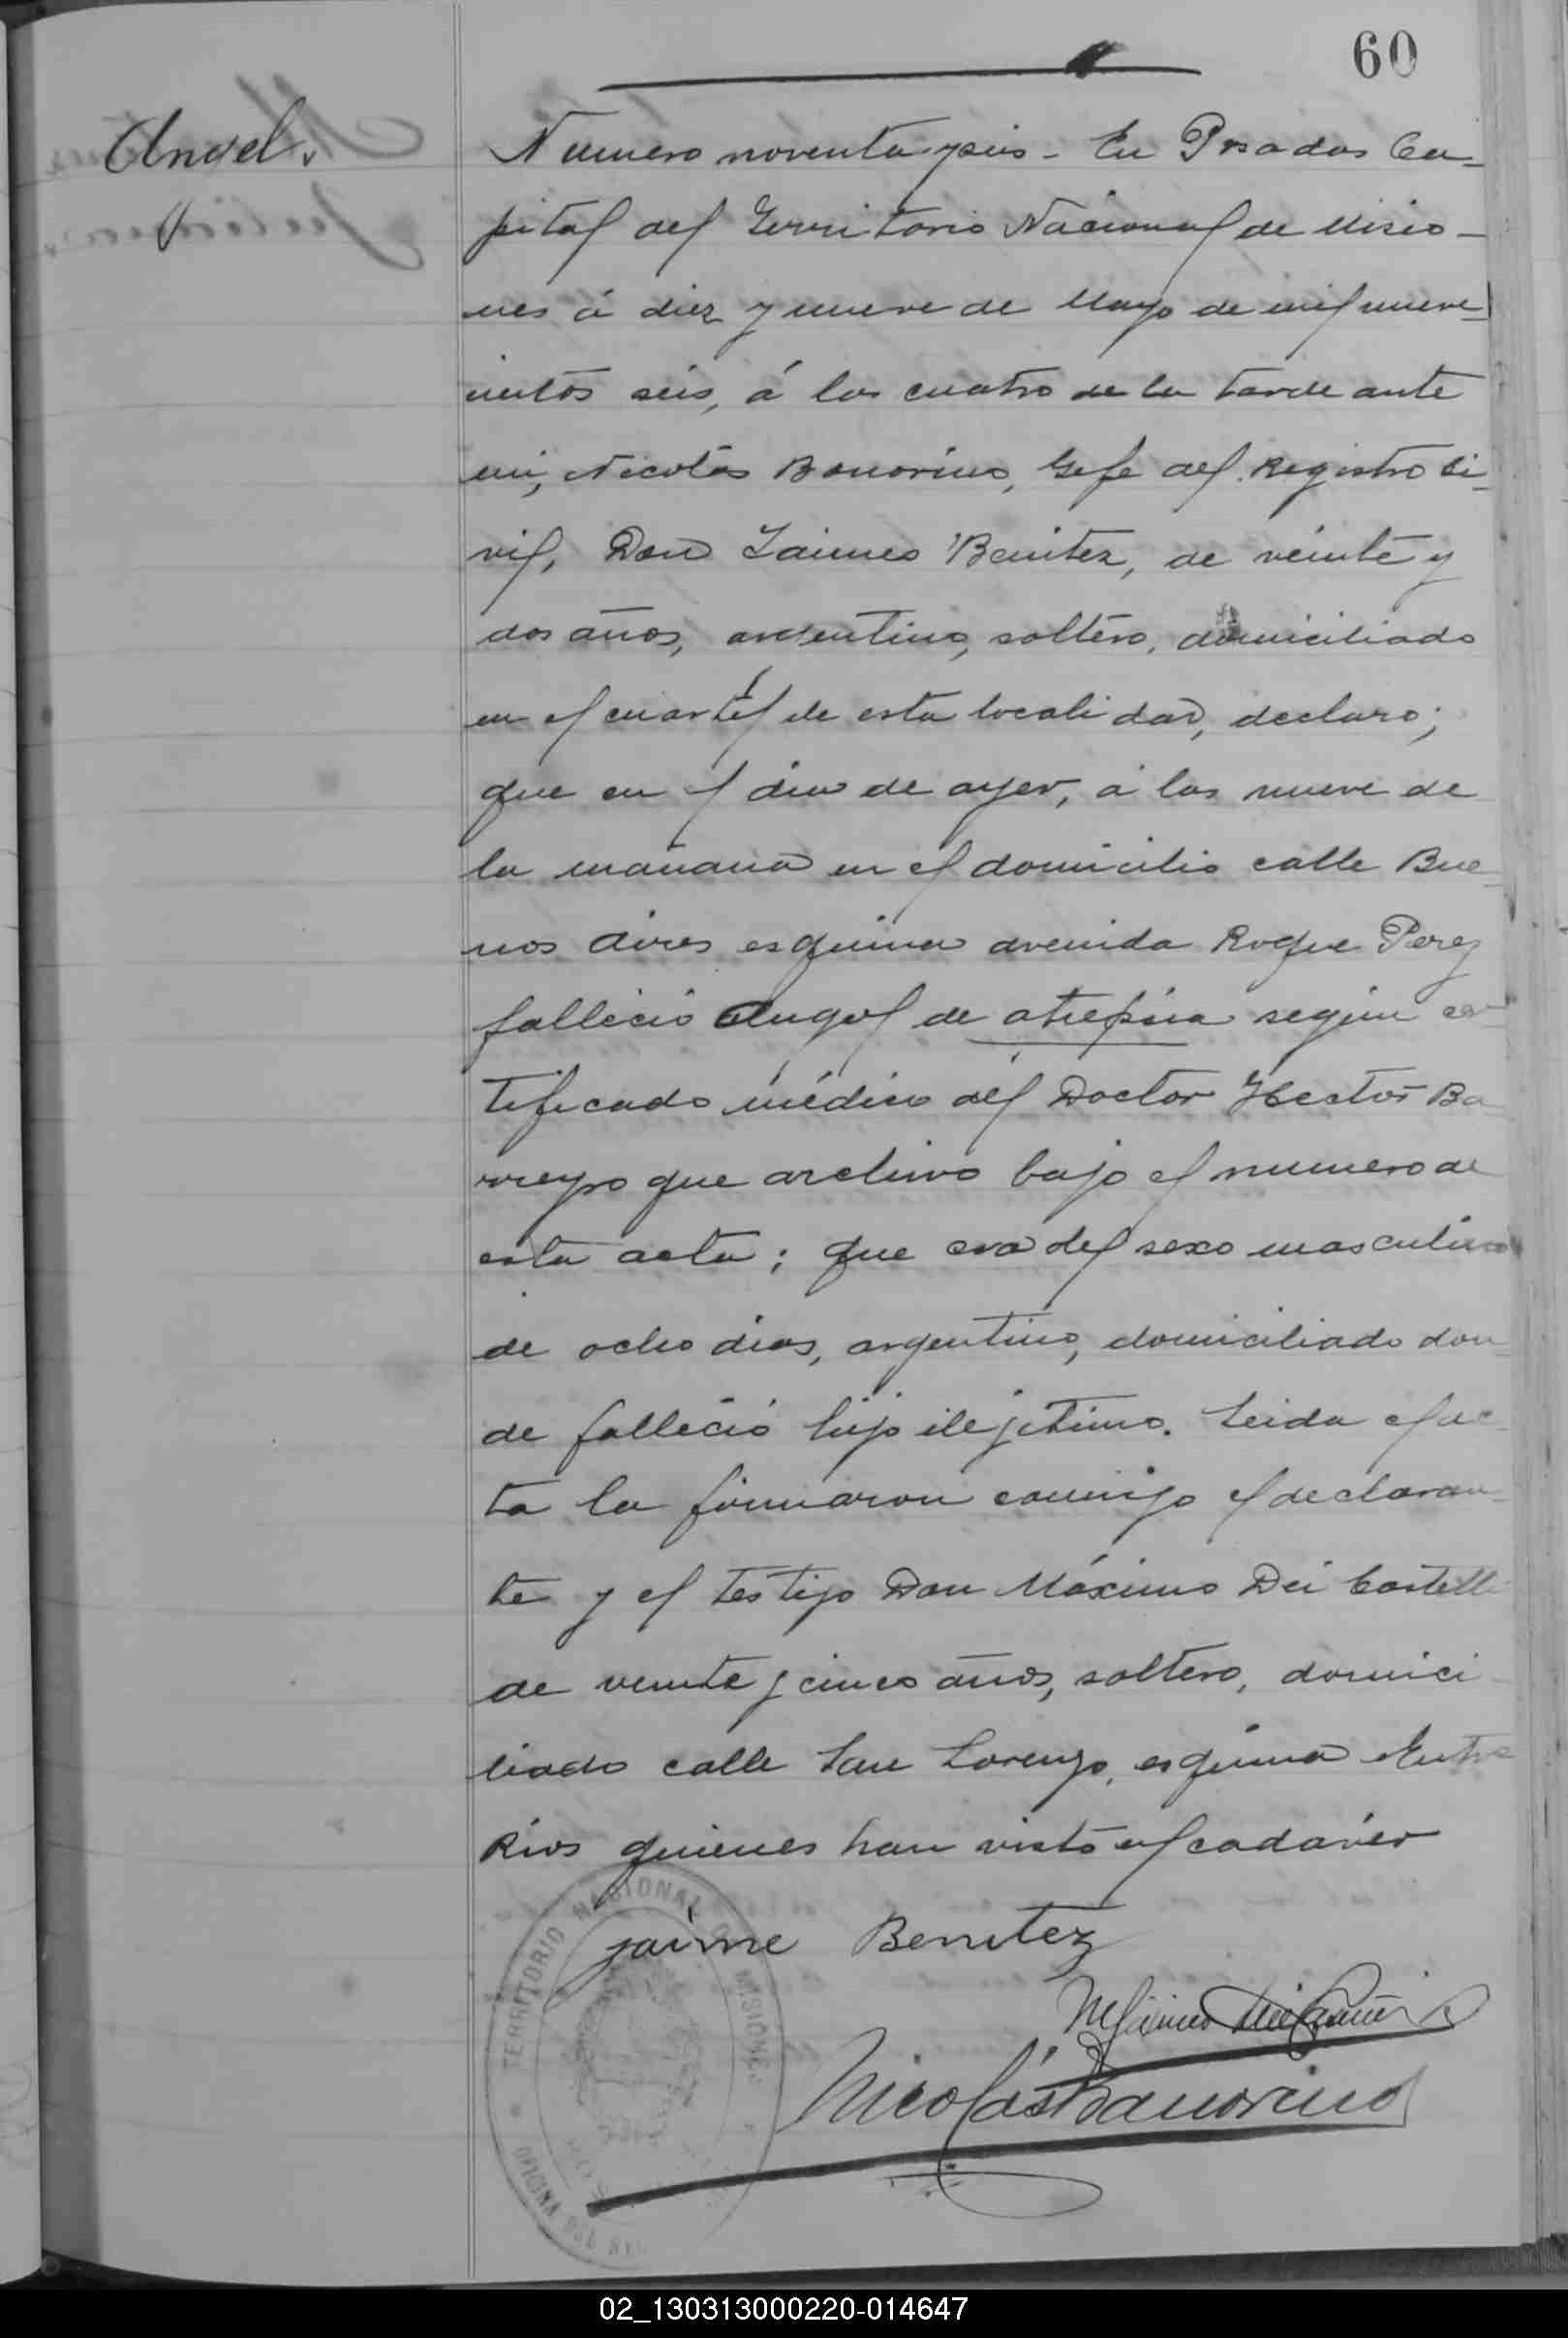 60
Angel.
Numero noventa y seis - En Posadas Ca-
pital del Territorio Nacional de Misio-
nes á diez y nueve de Mayo de mil nueve-
cientos seis, á las cuatro de la tarde ante
mi, Nicolás Bonorino, Gefe del Registro Ci-
vil, Don Jaimes Benitez, de veinte y
dos años, argentino, soltero, domiciliado
en el cuartel de esta localidad, declaro;
que en el dia de ayer, á las nueve de
la mañana en el domicilio calle Bue-
nos Aires esquina avenida Roque Perez
falleció Angel de atrepsia según cer
tificado médico del Doctor Hector Ba
rreyro que archivo bajo el numero de
esta acta; que era del sexo masculino
de ocho dias, argentino, domiciliado don-
de falleció hijo ilejitimo. Leida el ac-
ta la firmaron conmigo el declaran-
te y el testigo Don Máximo Dei Castelli
de veinte y cinco años, soltero, domici-
liado calle San Lorenzo, esquina Entre
Rios quienes han visto el cadáver
jaime Benitez
Nicolás Bonorino
TERRITORIO NACIONAL DE MISIONES
OFICINA
02_130313000220-014647